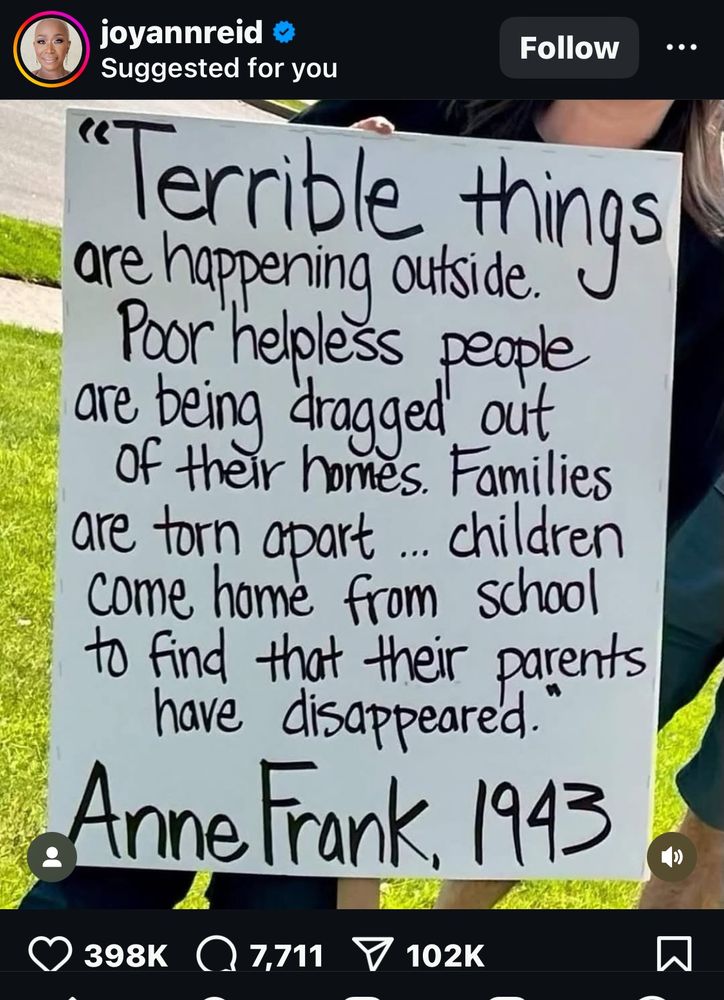 joyannreid
Suggested for you
Follow
“Terrible things
are happening outside.
Poor helpless people
are being dragged out
of their homes. Families
are torn apart ... children
come home from school
to find that their parents
have disappeared."
Anne Frank, 1943
398K 7,711 102K